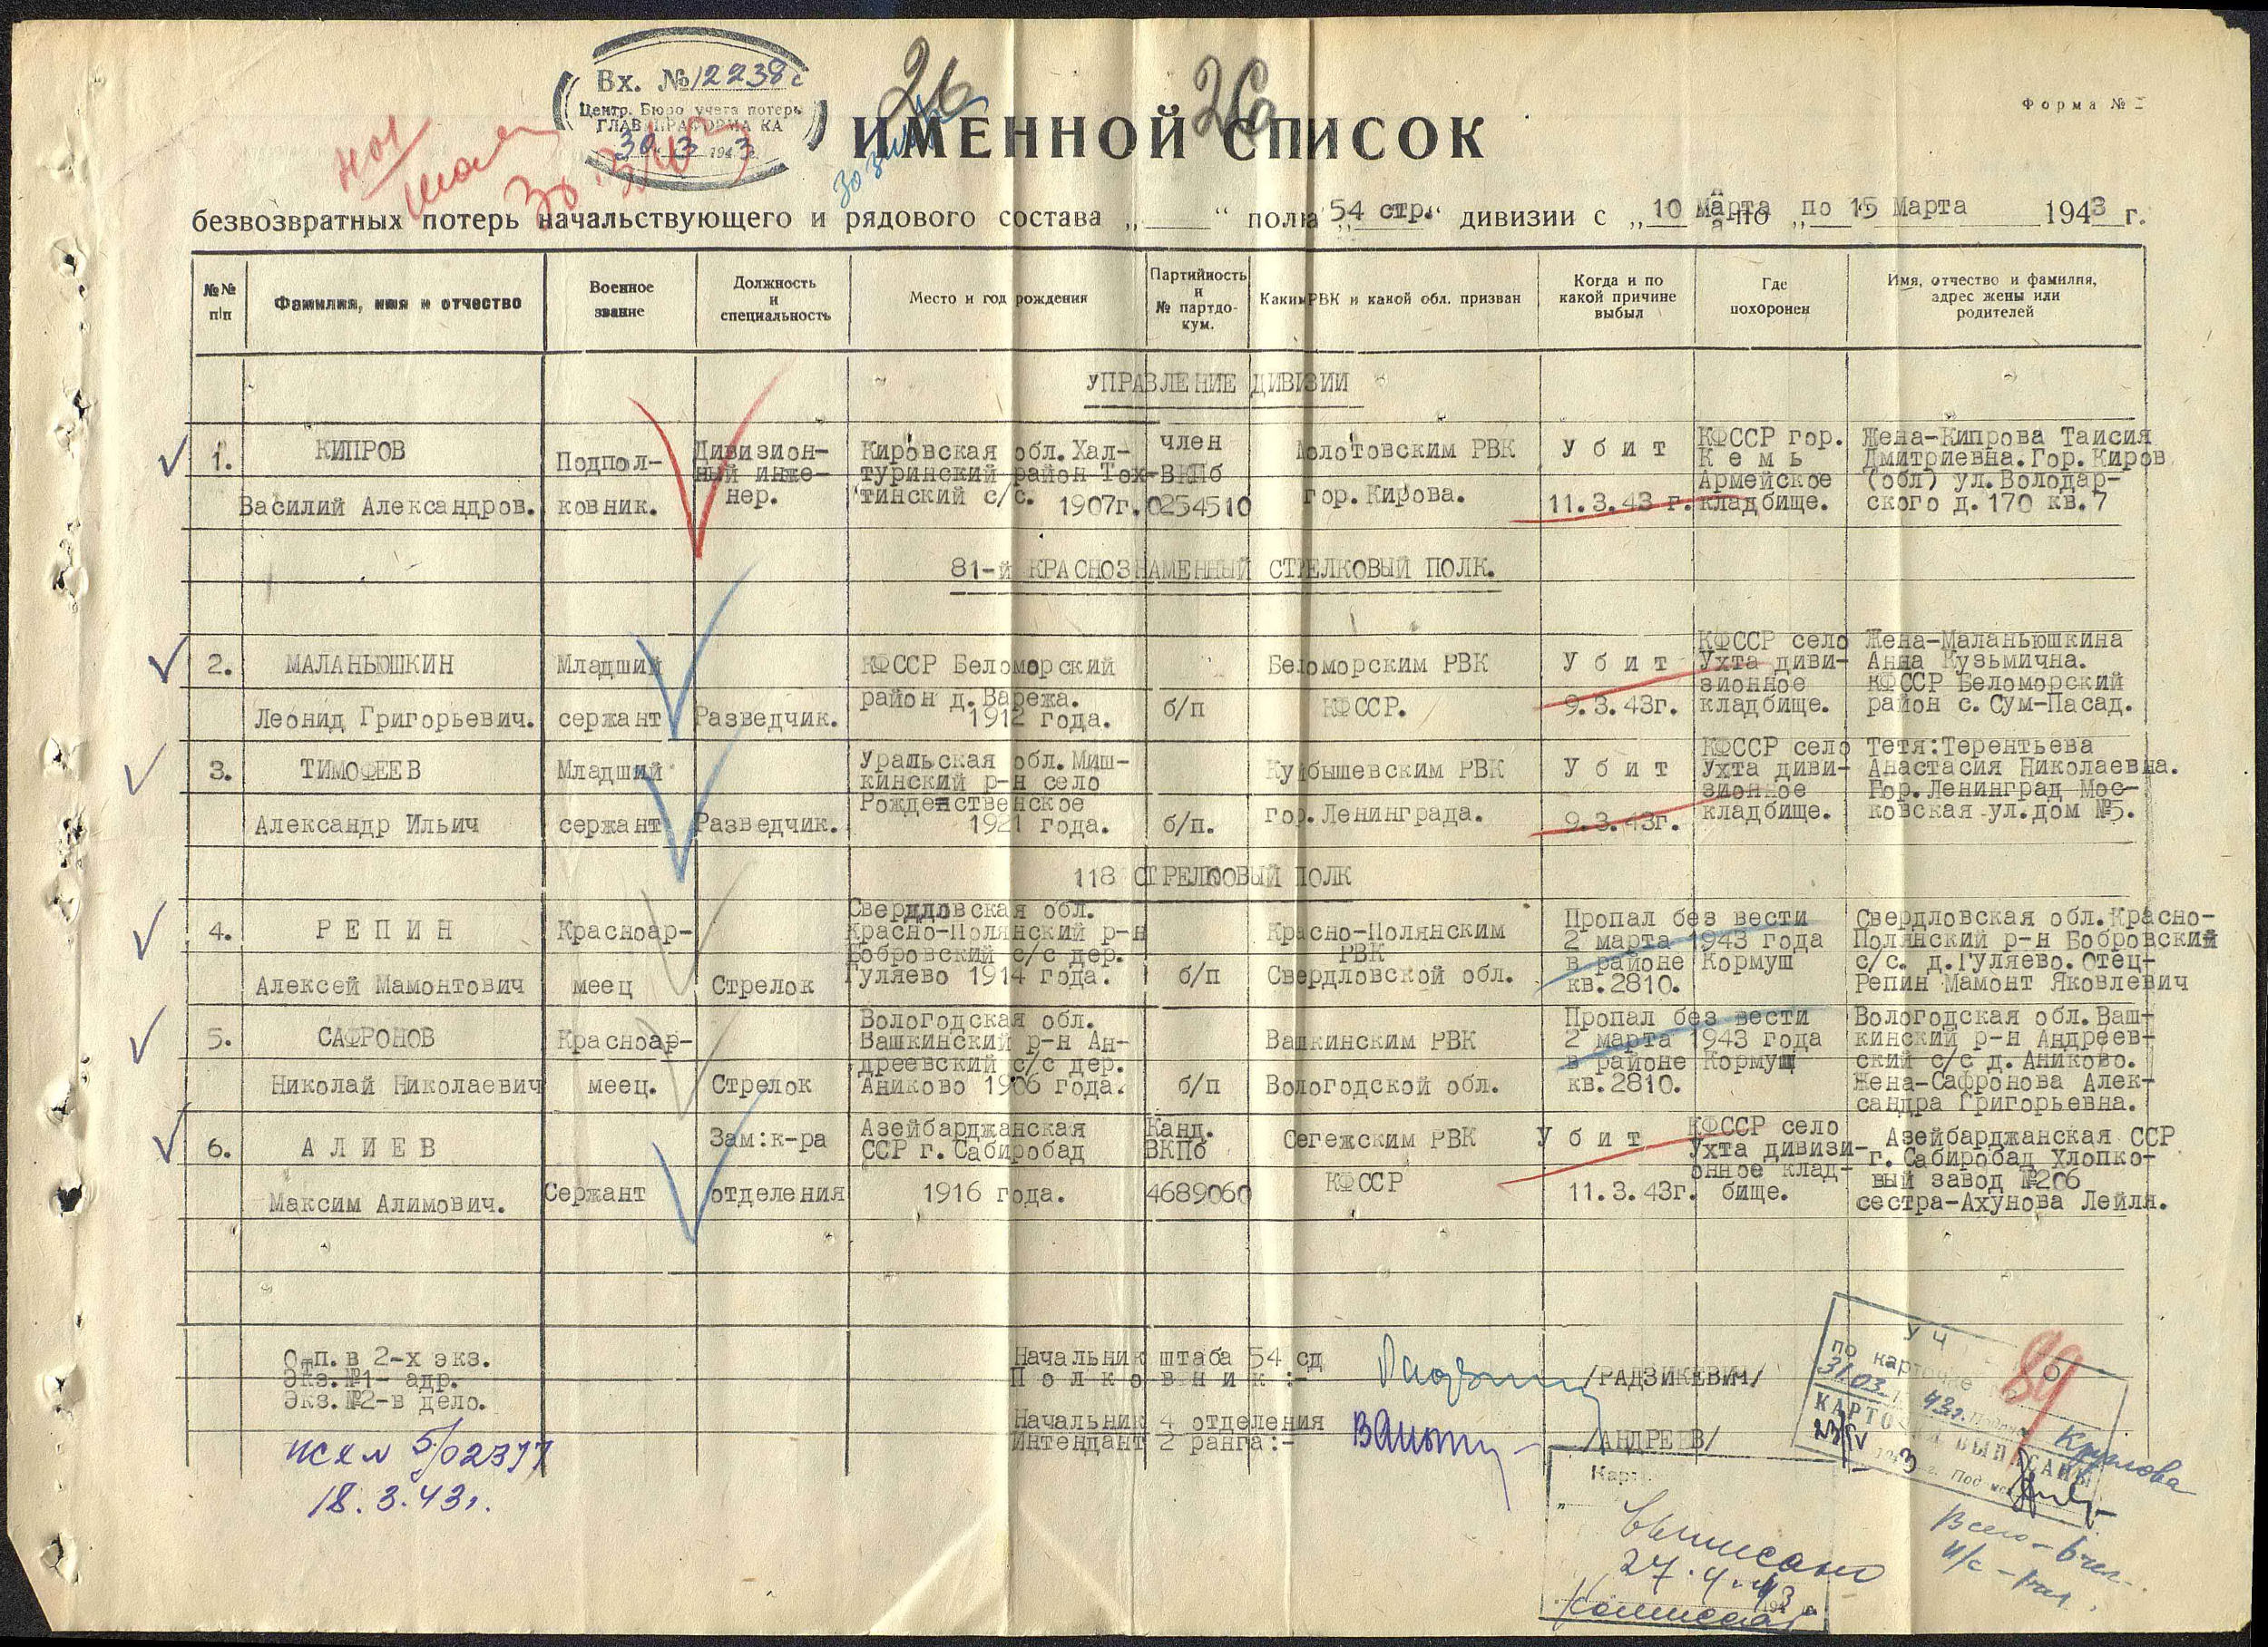 Вх. № 12238с
Центр. Бюро учета потерь
ГЛАВУПРАФОРМА КА
30 3 1943
26
26
Форма №
ИМЕННОЙ СПИСОК
безвозвратных потерь начальствующего и рядового состава „ “ полка „54 стр.“ дивизии с „10 Марта по „по 15 Марта 1943 г.
№№ п/п
Фамилия, имя и отчество
Военное звание
Должность и специальность
Место и год рождения
Партийность и № партдокум.
Каким РВК и какой обл. призван
Когда и по какой причине выбыл
Где похоронен
Имя, отчество и фамилия, адрес жены или родителей
УПРАВЛЕНИЕ ДИВИЗИИ
1.
КИПРОВ
Василий Александров.
Подпол-
ковник.
Дивизион-
ный инже-
нер.
Кировская обл.Хал-
туринский район Тох-
тинский с/с. 1907г.
член
ВКПб
0254510
Молотовским РВК
гор.Кирова.
У б и т
11.3.43 г.
КФССР гор.
К е м ь
Армейское
кладбище.
Жена-Кипрова Таисия
Дмитриевна.Гор.Киров
(обл) ул.Володар-
ского д.170 кв.7
81-й КРАСНОЗНАМЕННЫЙ СТРЕЛКОВЫЙ ПОЛК.
2.
МАЛАНЬЮШКИН
Леонид Григорьевич.
Младший
сержант
Разведчик.
КФССР Беломорский
район д.Варежа.
1912 года.
б/п
Беломорским РВК
КФССР.
У б и т
9.3.43г.
КФССР село
Ухта диви-
зионное
кладбище.
Жена-Маланьюшкина
Анна Кузьмична.
КФССР Беломорский
район с. Сум-Пасад.
3.
ТИМОФЕЕВ
Александр Ильич
Младший
сержант
Разведчик.
Уральская обл.Миш-
кинский р-н село
Рожденственское
1921 года.
б/п.
Куйбышевским РВК
гор.Ленинграда.
У б и т
9.3.43г.
КФССР село
Ухта диви-
зионное
кладбище.
Тетя:Терентьева
Анастасия Николаевна.
Гор.Ленинград Мос-
ковская ул.дом №5.
118 СТРЕЛКОВЫЙ ПОЛК
4.
Р Е П И Н
Алексей Мамонтович
Красноар-
меец
Стрелок
Свердловская обл.
Красно-Полянский р-н
Бобровский с/с дер.
Гуляево 1914 года.
б/п
Красно-Полянским
РВК
Свердловской обл.
Пропал без вести
2 марта 1943 года
в районе Кормуш
кв.2810.
Свердловская обл.Красно-
Полянский р-н Бобровский
с/с. д.Гуляево.Отец-
Репин Мамонт Яковлевич
5.
САФРОНОВ
Николай Николаевич
Красноар-
меец.
Стрелок
Вологодская обл.
Вашкинский р-н Ан-
дреевский с/с дер.
Аниково 1906 года.
б/п
Вашкинским РВК
Вологодской обл.
Пропал без вести
2 марта 1943 года
в районе Кормущ
кв.2810.
Вологодская обл.Ваш-
кинский р-н Андреев-
ский с/с д. Аниково.
Жена-Сафронова Алек-
сандра Григорьевна.
6.
А Л И Е В
Максим Алимович.
Сержант
Зам:к-ра
отделения
Азейбарджанская
ССР г. Сабиробад
1916 года.
Канд.
ВКПб
4689060
Сегежским РВК
КФССР
У б и т
11.3.43г.
КФССР село
Ухта дивизи-
онное клад-
бище.
Азейбарджанская ССР
г. Сабиробад Хлопко-
вый завод №206
сестра-Ахунова Лейля.
Отп. в 2-х экз.
Экз.№1- адр.
Экз.№2-в дело.
исх № 5/02377
18.3.43г.
Начальник штаба 54 сд
П о л к о в н и к :-
/РАДЗИКЕВИЧ/
Начальник 4 отделения
Интендант 2 ранга:-
/АНДРЕЕВ/
У Ч О
по карточке
31.03. 43г.
Круглова
КАРТОЧКИ ВЫПИСАНЫ
23/IV 1943 г.
89
Карт.
Выписано
27.4.43
Всего - 6 чел.
н/с - 1 чел.